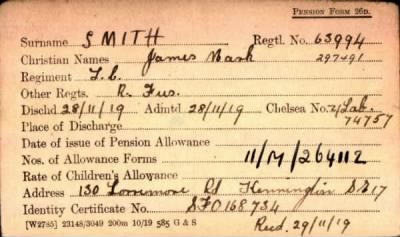 PENSION FORM 26D.
Surname SMITH Regtl. No. 63994
Christian Names James Mark 297491
Regiment L.C.
Other Regts. R. Fus.
Dischd 28/11/19 Admtd 28/11/19 Chelsea No. 2/Lab. 74757
Place of Discharge
Date of issue of Pension Allowance
Nos. of Allowance Forms 11/M/264112
Rate of Children's Allowance
Address 130 Lorrimore Rd Kennington S.E17
Identity Certificate No. SFO168734
[W2785] 23148/3049 200m 10/19 585 G & S Recd. 29/11/19